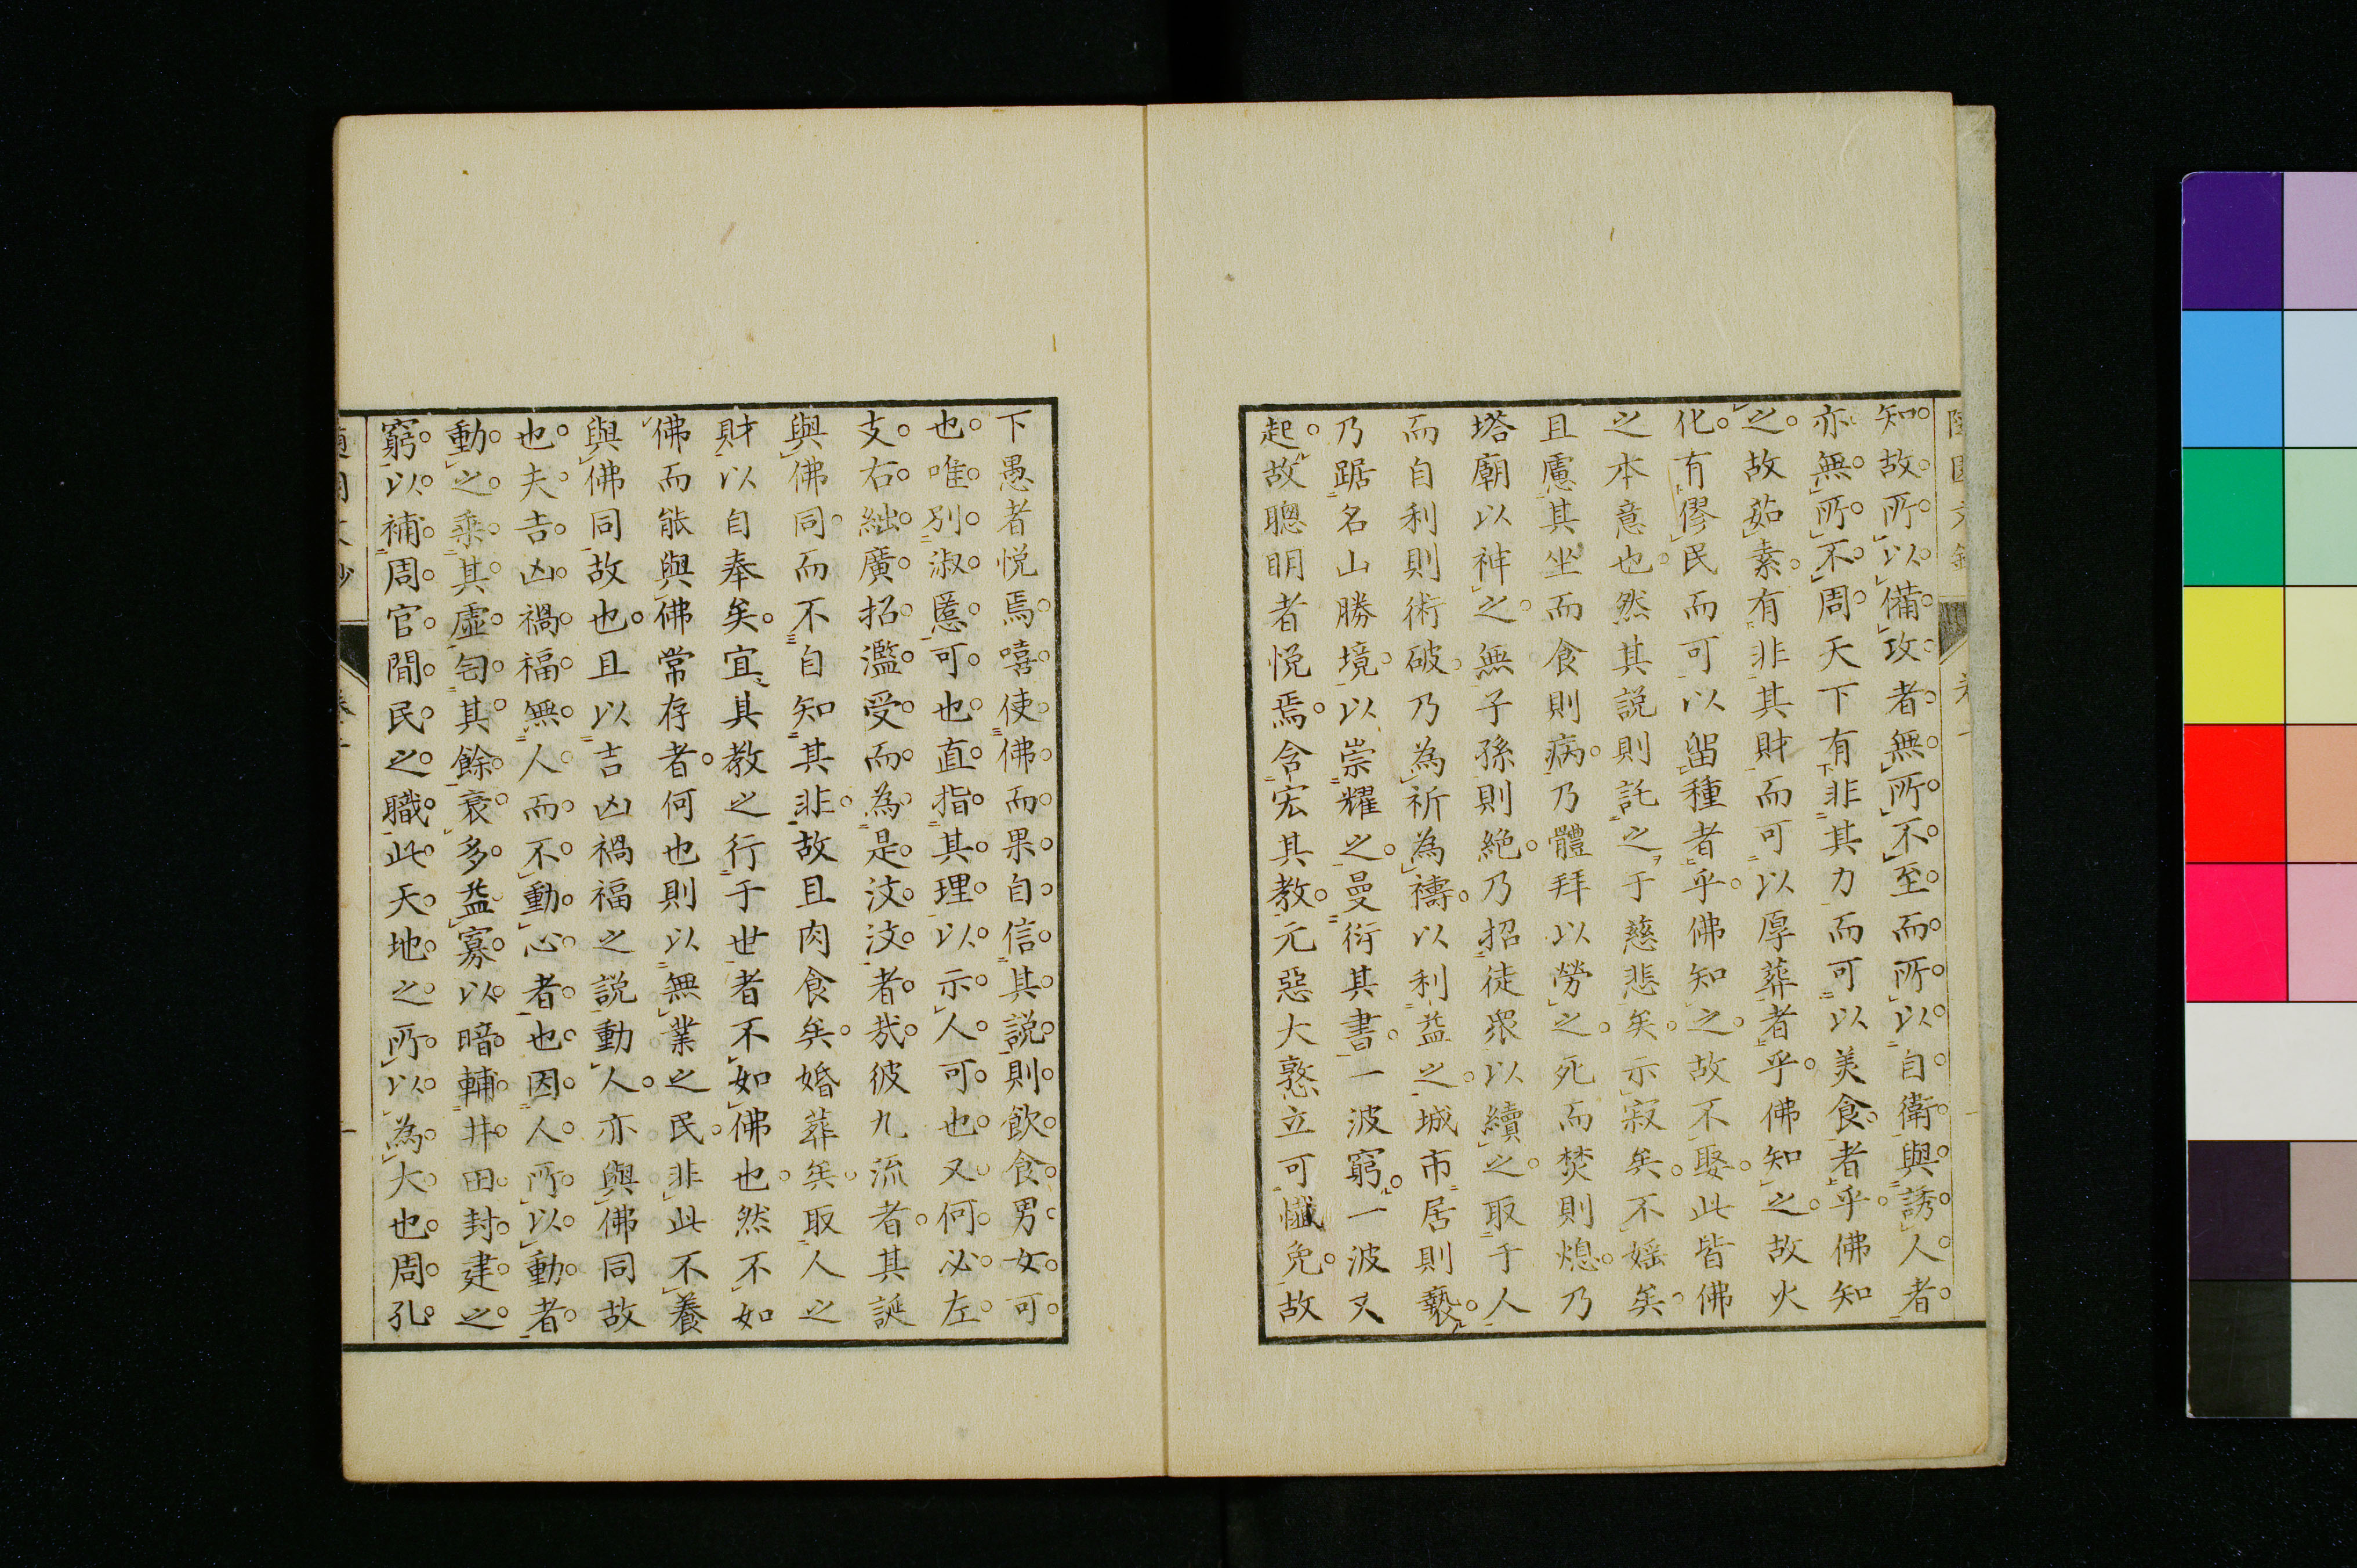 知故所以備攻者無所不至而所以自衛與誘人者
亦無所不周天下有非其力而可以美食者乎佛知
之故茹素有非其財而可以厚葬者乎佛知之故火
化有僇民而可以留種者乎佛知之故不娶此皆佛
之本意也然其說則託之于慈悲矣示寂矣不婬矣
且慮其坐而食則病乃體拜以勞之死而焚則熄乃
塔廟以神之無子孫則絶乃招徒衆以續之取于人
而自利則術破乃為祈為禱以利益之城市居則褻
乃踞名山勝境以崇耀之曼衍其書一波窮一波又
起故聰明者悅焉含宏其教元惡大憝立可懺免故
下愚者悅焉嘻使佛而果自信其說則飲食男女可
也唯別淑慝可也直指其理以示人可也又何必左
支右絀廣招濫受而為是汶汶者哉彼九流者其誕
與佛同而不自知其非故且肉食矣婚葬矣取人之
財以自奉矣宜其教之行于世者不如佛也然不如
佛而能與佛常存者何也則以無業之民非此不養
與佛同故也且以吉凶禍福之説動人亦與佛同故
也夫吉凶禍福無人而不動心者也因人所以動者
動之乘其虛匄其餘裒多益寡以暗輔井田封建之
窮以補周官閒民之職此天地之所以為大也周孔